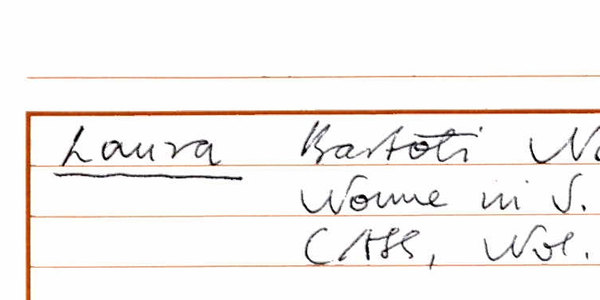 Laura Bartoli No
Nonne in S.
CASS, Not.